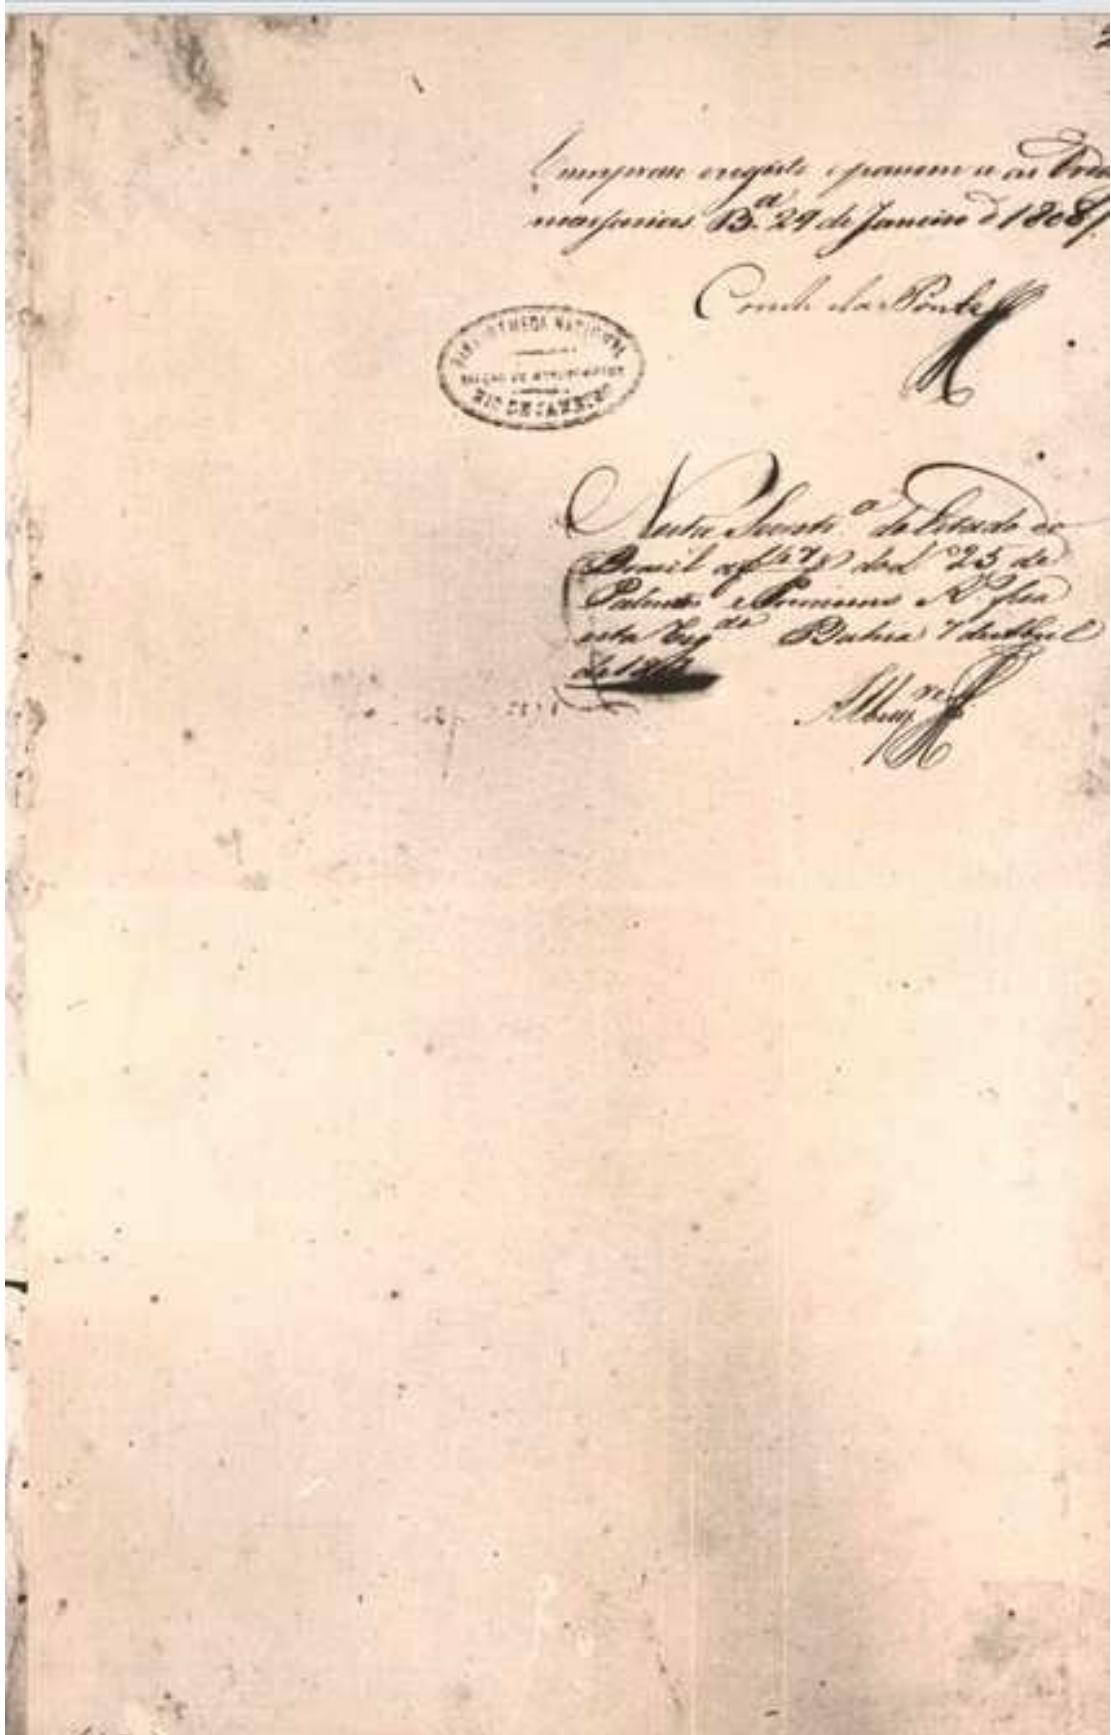 Cumprase e registe e passem se as Orde
necessarias B.ª 29 de Janeiro d 1808
Conde da Ponte
BIBLIOTHECA NACIONAL
SECÇÃO DE MANUSCRIPTOS
RIO DE JANEIRO
Nesta Secretr.ª do Estado do
Brasil a f 47 do L 25 de
Patentes e Provisoens Rˡ fica
esta Bahia 7 de Abril
de